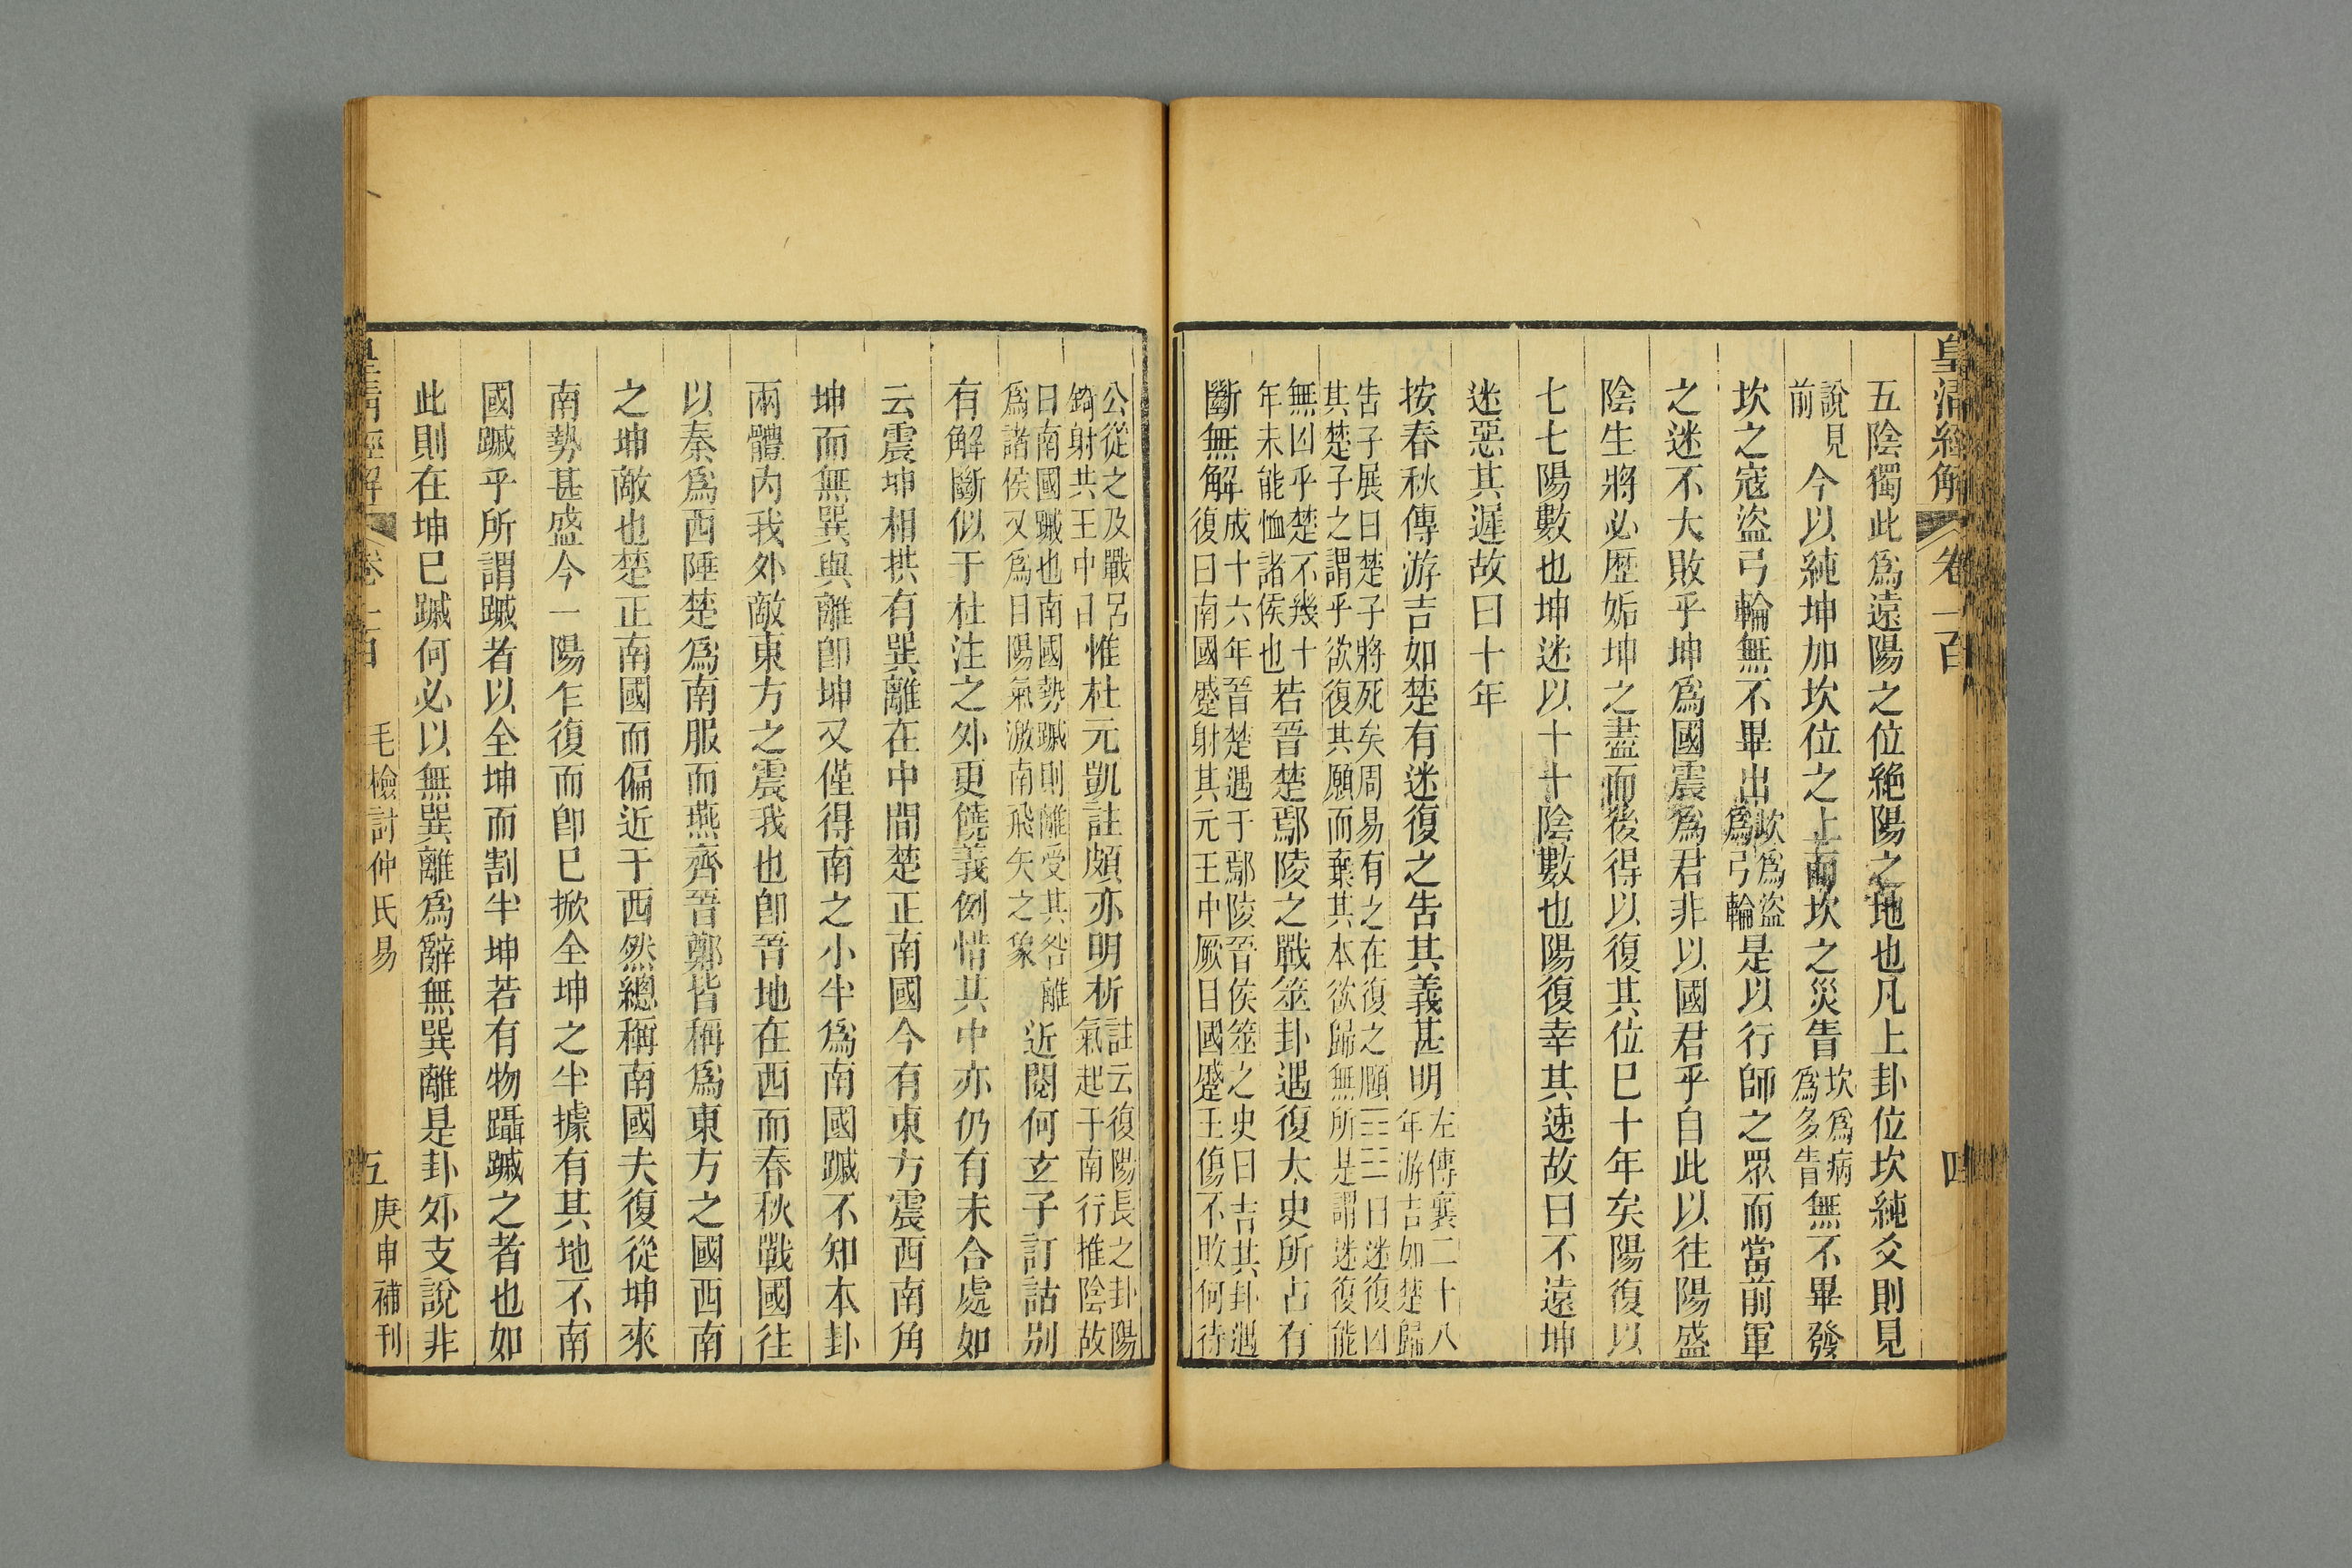 皇清經解 卷一百 四
五陰獨此爲遠陽之位絕陽之地也凡上卦位坎純爻則見
說見前今以純坤加坎位之上而坎之災眚坎爲病爲多眚無不畢發
坎之寇盜弓輪無不畢出坎爲盜爲弓輪是以行師之眾而當前軍
之迷不大敗乎坤爲國震爲君非以國君乎自此以往陽盛
陰生將必歷姤坤之盡而後得以復其位巳十年矣陽復以
七七陽數也坤迷以十十陰數也陽復幸其速故曰不遠坤
迷惡其遲故曰十年
按春秋傳游吉如楚有迷復之告其義甚明左傳襄二十八年游吉如楚歸
告子展曰楚子將死矣周易有之在復之頤䷗䷚曰迷復凶其楚子之謂乎欲復其願而棄其本欲歸無所是謂迷復能
無凶乎楚不幾十年未能恤諸侯也若晉楚鄢陵之戰筮卦遇復太史所占有
斷無解成十六年晉楚遇于鄢陵晉侯筮之史曰吉其卦遇復曰南國䠞射其元王中厥目國䠞王傷不敗何待
公從之及戰呂錡射共王中目惟杜元凱註頗亦明析註云復陽長之卦陽氣起于南行推陰故
曰南國䠞也南國勢䠞則離受其咎離爲諸侯又爲目陽氣激南飛矢之象近閱何玄子訂詁别
有解斷似于杜注之外更饒義例惜其中亦仍有未合處如
云震坤相拱有巽離在中間楚正南國今有東方震西南角
坤而無巽與離卽坤又僅得南之小半爲南國䠞不知本卦
兩體内我外敵東方之震我也卽吾地在西而春秋戰國往
以秦爲西陲楚爲南服而燕齊晉鄭皆稱爲東方之國西南
之坤敵也楚正南國而偏近于西然總稱南國夫復從坤來
南勢甚盛今一陽乍復而卽巳掀全坤之半據有其地不南
國䠞乎所謂䠞者以全坤而割半坤若有物躡䠞之者也如
此則在坤巳䠞何必以無巽離爲辭無巽離是卦外支說非
皇清經解 卷一百 毛檢討仲氏易 五 庚申補刊